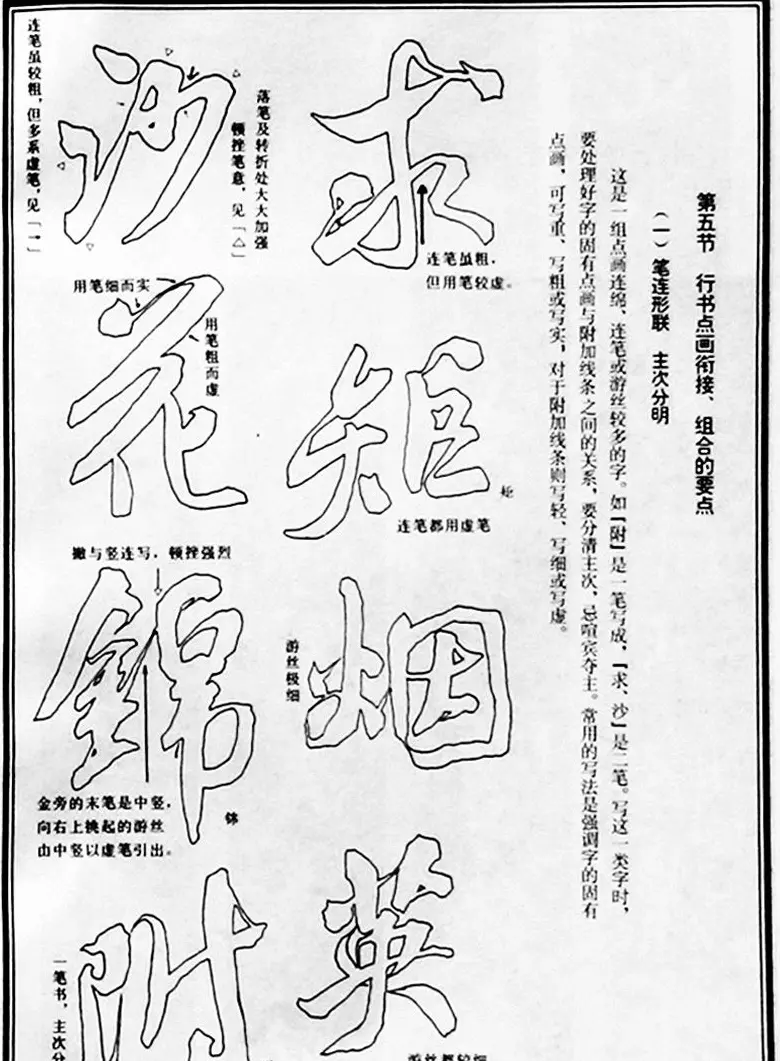 第五节　行书点画衔接、组合的要点
（一）笔连形联　主次分明
这是一组点画连绵、连笔或游丝较多的字。如「附」是一笔写成，「求、沙」是二笔。写这一类字时，
要处理好字的固有点画与附加线条之间的关系，要分清主次，忌喧宾夺主。常用的写法是强调字的固有
点画，可写重、写粗或写实，对于附加线条则写轻、写细或写虚。
求
连笔虽粗，
但用笔较虚。
矩
矩
连笔都用虚笔
烟
游丝极细
英
游丝都较细
沙
落笔及转折处大大加强
顿挫笔意，见「△」
连笔虽较粗，但多系虚笔，见「→」
花
用笔细而实
用笔粗而虚
锦
撇与竖连写，顿挫强烈
锦
金旁的末笔是中竖，
向右上挑起的游丝
由中竖以虚笔引出。
附
一笔书，主次分